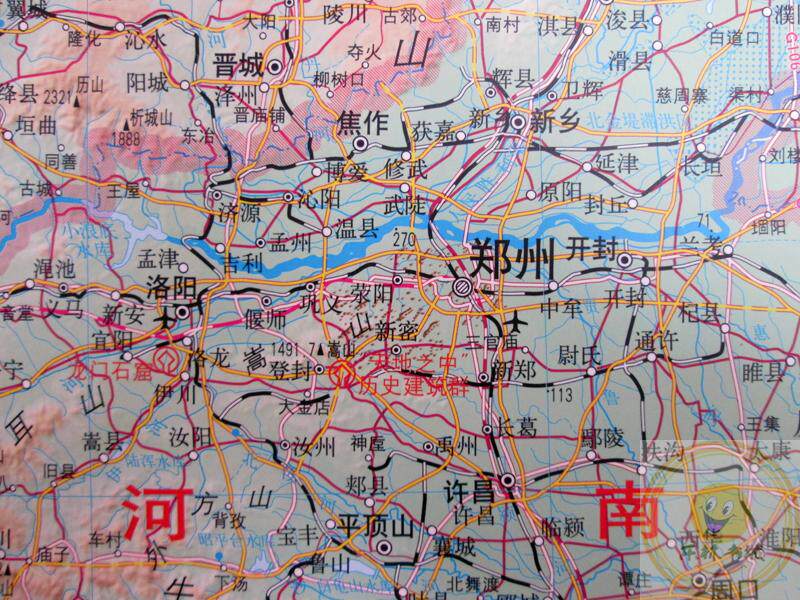 冀城
隆化
沁水
大阳
陵川
古郊
南村
淇县
浚县
濮
白道口
G106
山
夺火
滑县
晋城
柳树口
辉县
卫辉
慈周寨
渠村
绛县
2321
历山
阳城
泽州
晋庙铺
垣曲
析城山
1888
东冶
焦作
获嘉
新乡
新乡
北金堤滞洪区
同善
博爱
修武
延津
长垣
刘楼
古城
王屋
济源
沁阳
武陟
原阳
封丘
71
堌阳
小浪底
水库
孟州
温县
270
郑州
开封
兰考
渑池
孟津
吉利
洛阳
巩义
荥阳
中牟
开封
杞县
义马
新安
偃师
山
新密
三官庙
通许
惠
宜阳
洛龙
嵩
1491.7
嵩山
"天地之中"
历史建筑群
尉氏
睢县
龙门石窟
登封
新郑
伊川
113
山
大金店
耳
嵩县
汝阳
汝州
神垕
禹州
长葛
鄢陵
王集
旧县
陆浑水库
太康
郏县
许昌
河
方
山
许昌
南
背孜
昭平台水库
宝丰
平顶山
襄城
临颍
西华
淮阳
车村
庙子
鲁山
下汤
北舞渡
谭庄
周口
牛
叶县
郾城